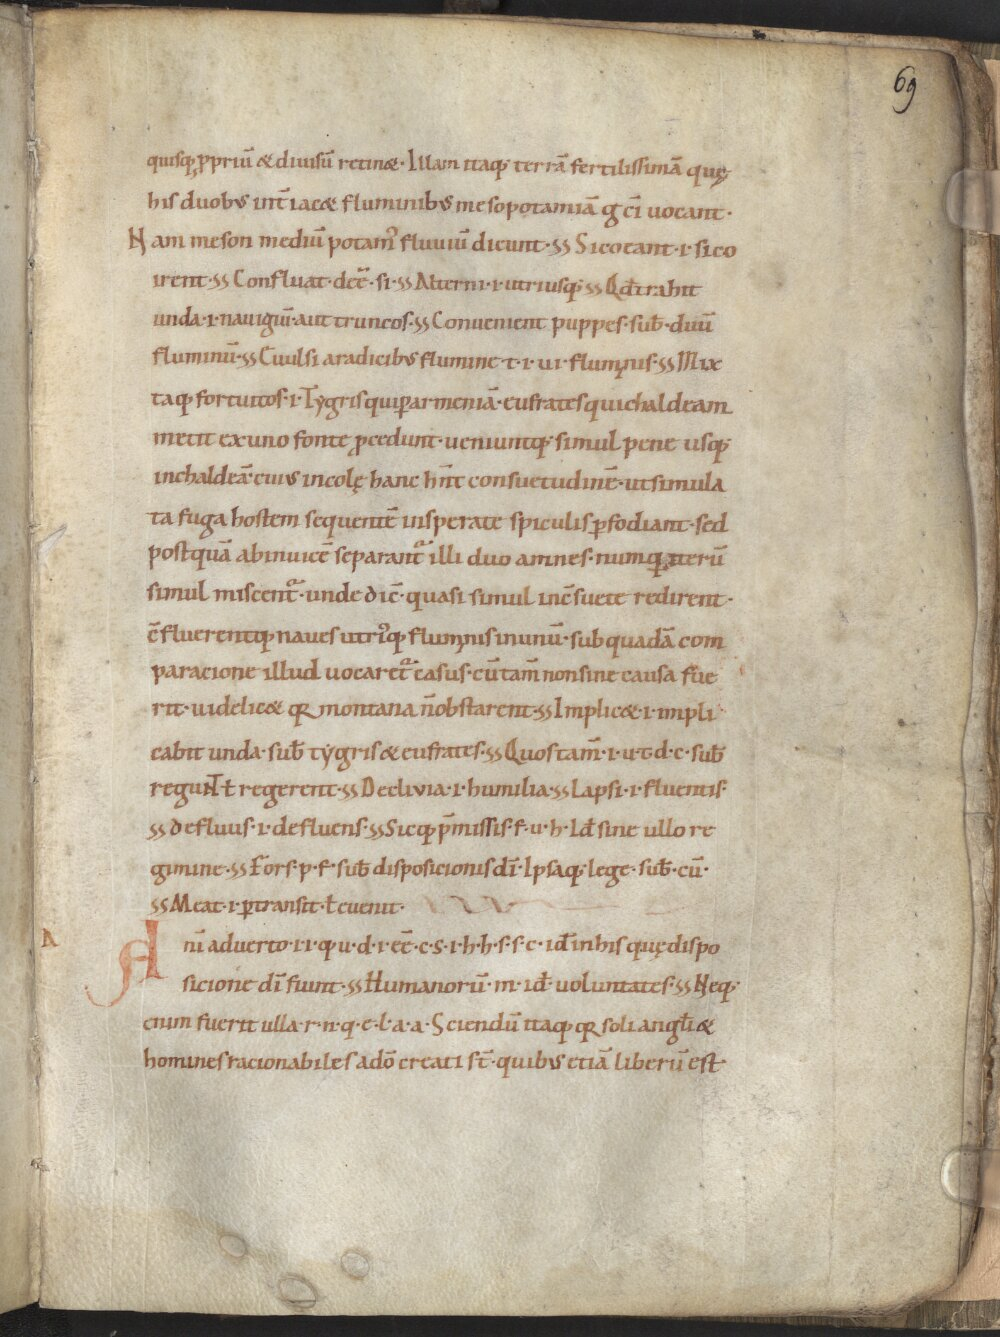 69
quisq; ꝓpriū & diuisū retin&. Illam itaq; terrā fertilissimā quę
his duobus int̄iac& fluminibus mesopotamiā gci uocant.
Nam meson mediū potam̉ fluuiū dicunt. Si coeant .i. si co
irent. Confluat. dee᷑. si. Alterni .i. utriusq;. Qđ trahit
unda .i. nauigiū. aut truncos. Conuenient puppes. sub̄. duū
fluminū. Cuulsi a radicibus flumine .t.i. ui fluminis. Mix
taq; fortuitos .i. Tygris qui ꝑ armeniā. eufrates qui chaldeam
metit ex uno fonte ꝓcedunt. ueniuntq; simul pene usq;
in chaldeā. cuius incolę hanc hn̄t consuetudinē. ut simula
ta fuga hostem sequentē insperate spiculis ꝑfodiant. sed
postquā ab inuicē separant᷑ illi duo amnes. numquā iterū
simul miscent᷑. unde dic̄. quasi simul inc̄suete redirent.
c̄fluerentq; naues utri᷒q; fluminis in unū. sub quadā com
paracione illud uocaret᷑ casus. cū tam̄ non sine causa fue
rit. uidelic& qꝛ montana n̄ obstarent. Implic& .i. impli
cabit unda. sub̄. tygris & eufrates. Quos tam̄ .i.u.t.d.c. sub̄
regunt ł regerent. Decliuia .i. humilia. Lapsi .i. fluentis.
defluus .i. defluens. Sicq; p̄missis .f.u.h. Id̄ sine ullo re
gimine. Fors .p.f. sub̄ disposicionis dī. Ipsaq; lege. sub̄. cū.
Meat .i. ꝑtransit. ł euenit.
A
Anī aduerto .i.i.q.u.d.i. eē .c.s.i.h.h.s.s.c. id̄ in his quę dispo
sicione dī fiunt. Humanorū .m. id̄ uoluntates. Neq;
enim fuerit ulla .r.n.q.e.l.a.a. Sciendū itaq; qꝛ soli angl̄i &
homines racionabiles a dō creati st̄. quibus etiā liberū est